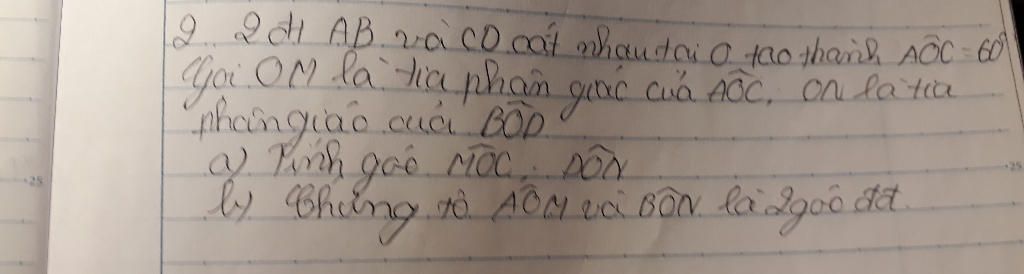 2. 2 đt AB và CD cắt nhau tại O tạo thành AÔC = 60°
Gọi OM là tia phân giác của AÔC, ON là tia
phân giác của BÔD
a) Tính góc MÔC, DÔN
b) Chứng tỏ AÔM và BÔN là 2 góc đđ.